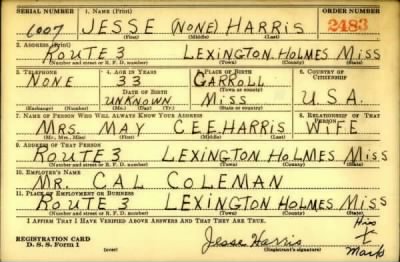 SERIAL NUMBER 1. NAME (Print) ORDER NUMBER
6007 JESSE (NONE) HARRIS 2483
(First) (Middle) (Last)
2. ADDRESS (Print)
ROUTE 3 LEXINGTON HOLMES MISS
(Number and street or R. F. D. number) (Town) (County) (State)
3. TELEPHONE 4. AGE IN YEARS 5. PLACE OF BIRTH 6. COUNTRY OF CITIZENSHIP
NONE 33 CARROLL
(Town or county)
DATE OF BIRTH
UNKNOWN MISS U.S.A.
(Exchange) (Number) (Mo.) (Day) (Yr.) (State or country)
7. NAME OF PERSON WHO WILL ALWAYS KNOW YOUR ADDRESS 8. RELATIONSHIP OF THAT PERSON
MRS. MAY CEE HARRIS WIFE
(Mr., Mrs., Miss) (First) (Middle) (Last)
9. ADDRESS OF THAT PERSON
ROUTE 3 LEXINGTON HOLMES MISS
(Number and street or R. F. D. number) (Town) (County) (State)
10. EMPLOYER'S NAME
MR. CAL COLEMAN
11. PLACE OF EMPLOYMENT OR BUSINESS
ROUTE 3 LEXINGTON HOLMES MISS
(Number and street or R. F. D. number) (Town) (County) (State)
I AFFIRM THAT I HAVE VERIFIED ABOVE ANSWERS AND THAT THEY ARE TRUE.
REGISTRATION CARD
D. S. S. Form 1
Jesse Harris His X Mark
(Registrant's signature)